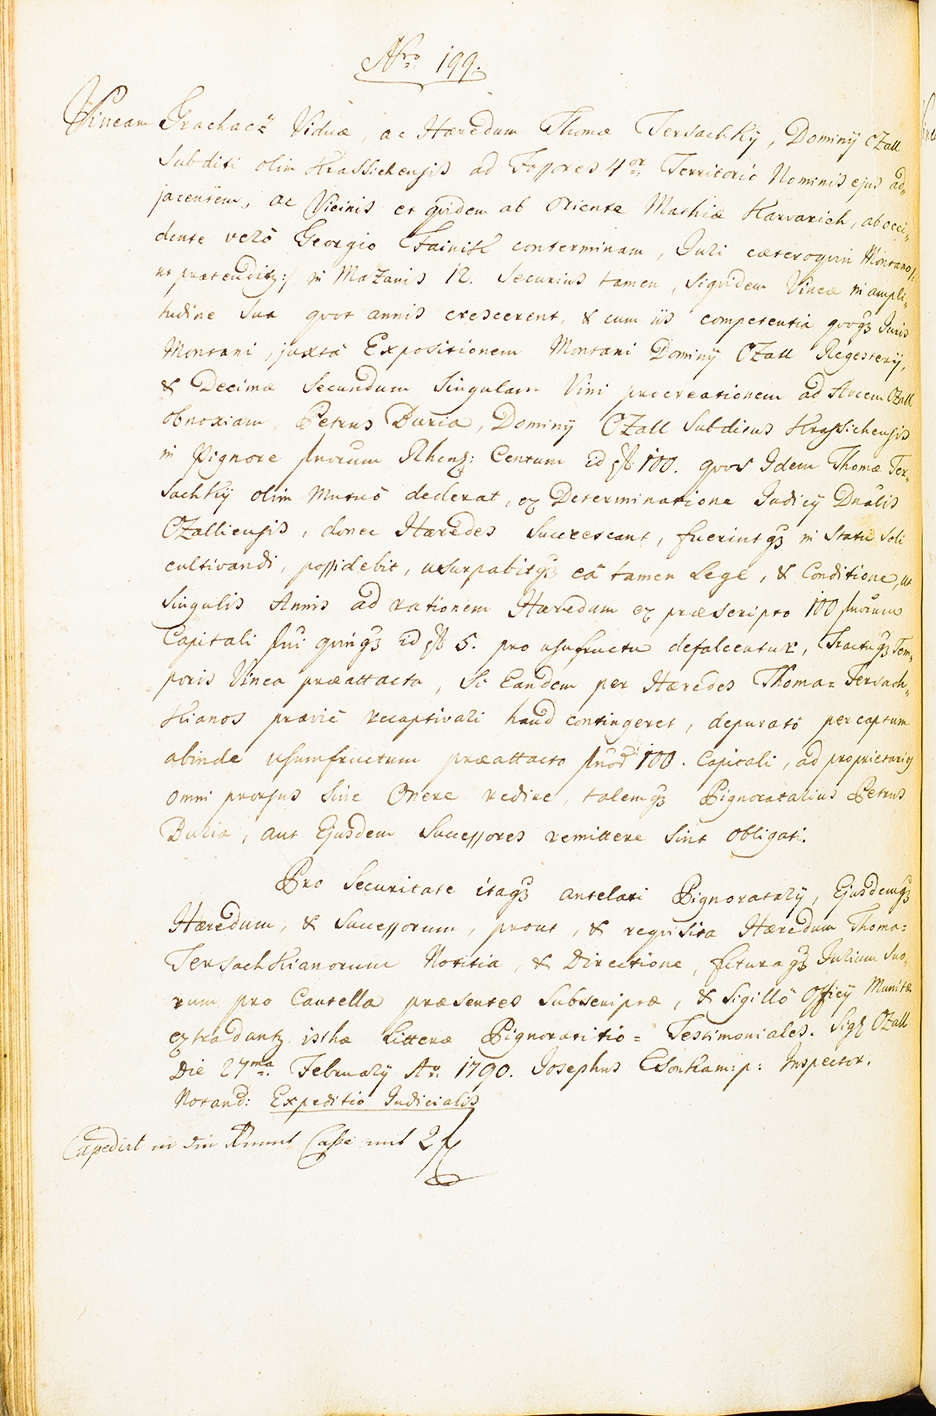 Nro 199.
Vineam Grachacz Viduæ, ac Hæredum Thomæ Tersachky, Dominÿ Ozall
Subditi olim Krassichensis ad Fossores 4or Territorio Nominis ejus ad-
jacentem, ac Vicinis et quidem ab Oriente Mathiæ Harvarich, ab occi-
dente verò Georgio Fainisk conterminam, Juri cæteroquin Montano /:
ut prætenditr :/ in Mazanis 12. Securius tamen, Siquidem Vineæ in ampli-
tudine Sua quot annis crescerent, & cum iis competentia quoq3 Juris
Montani, juxta Expositionem Montani Dominÿ Ozall Regestrÿ,
& Decimæ Secundum Singularem Vini procreationem ad Arcem Ozall
obnoxiam, Petrus Buria, Dominÿ Ozall Subditus Krassichensis
in Pignore flnorum Rhen: Centum id est 100. quos Idem Thomæ Ter-
sachky olim mutuò dederat, ex Determinatione Judicÿ Dnalis
Ozalliensis, donec Hæredes Succrescant, fuerintq3 in Statu Soli
cultivandi, possidebit, usurpabitq3 eâ tamen Lege, & Conditione, ut
Singulis Annis ad rationem Hæredum ex præscripto 100 flnorum
Capitali flni quinq3 id est 5. pro usufructu defalcentur, Tractuq3 Tem-
poris Vinea præattacta, Si Eandem per Hæredes Thoma= Tersach-
kianos prævie recaptivari haud contingeret, depurato per captum
abinde usumfructum præattacto flnor 100. Capitali, ad proprietarios
omni prorsus Sine Onere redire, talemq3 Pignoratarius Petrus
Buria, aut Ejusdem Successores remittere Sint obligati.
Pro Securitate itaq3 antelati Pignoratarÿ, Ejusdemq3
Hæredum, & Successorum, prout, & requisita Hæredum Thoma=
Tersachkianorum Notitia, & Directione, futuraq3 Jurium Suo-
rum pro Cautella præsentes Subscriptæ, & Sigillô Officÿ Munitæ
extradantr isthæ Litteræ Pignoratitio= Testimoniales. Sigl Ozall
Die 27ma Februarÿ Ao 1790. Josephus m:p: Inspector.
Notand: Expeditio Judicialis
Expedirt in die Rennt Cassa mit 2 f